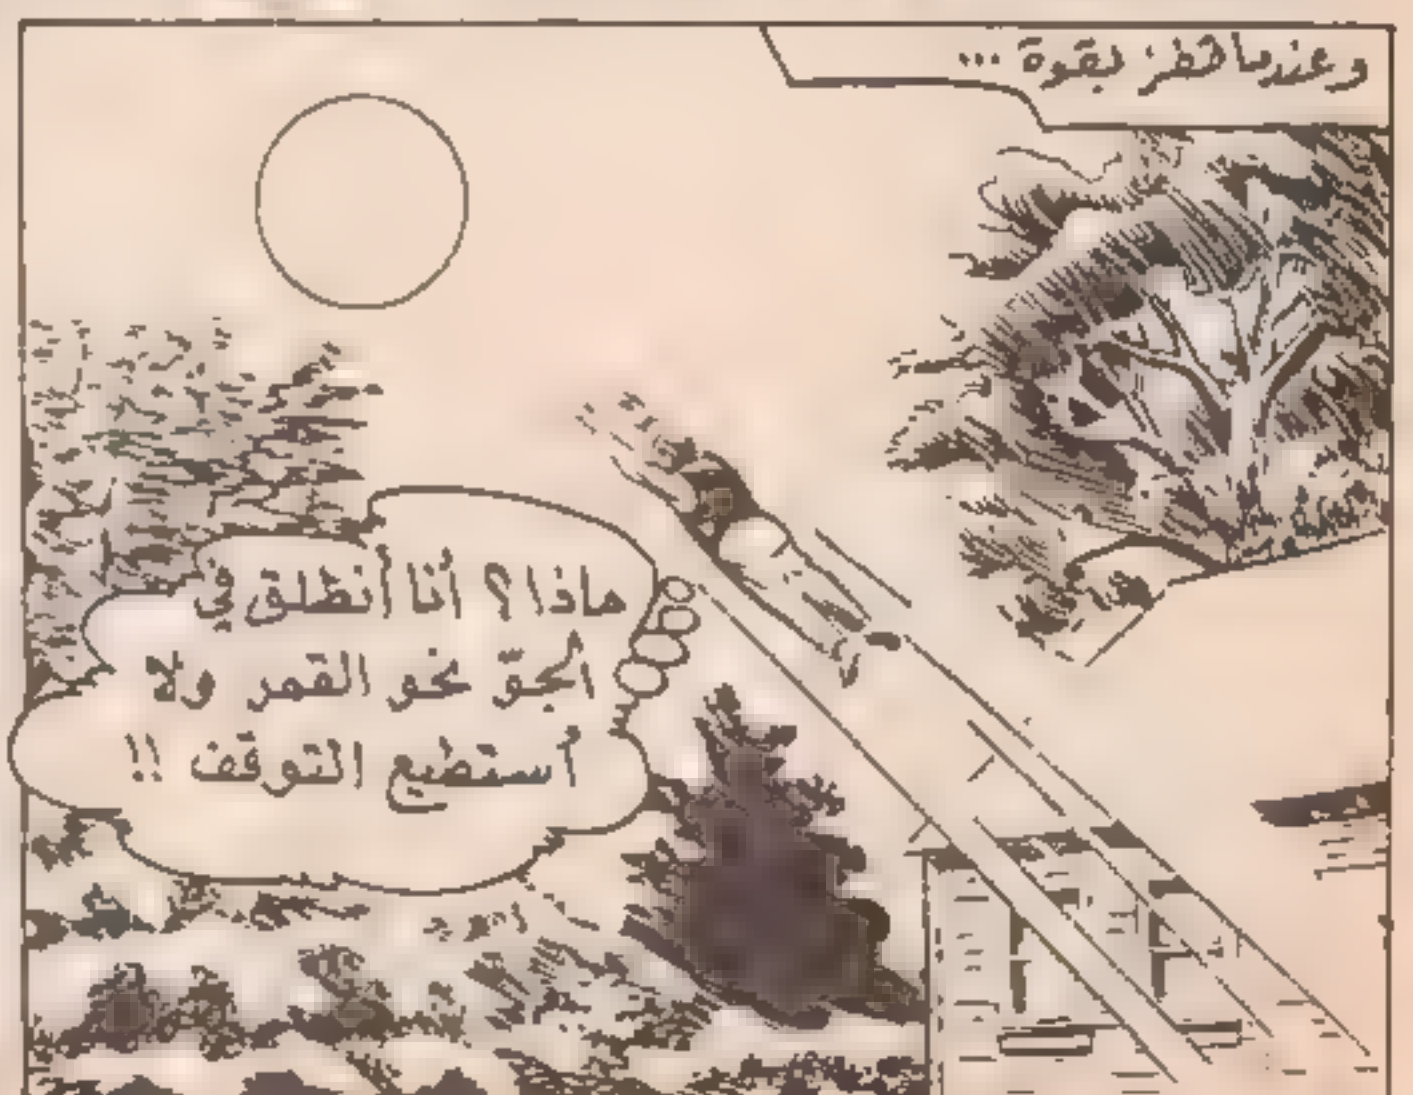 وعندما قفز بقوة ...
ماذا ؟ أنا أنطلق في
الجوّ نحو القمر ولا
أستطيع التوقف !!